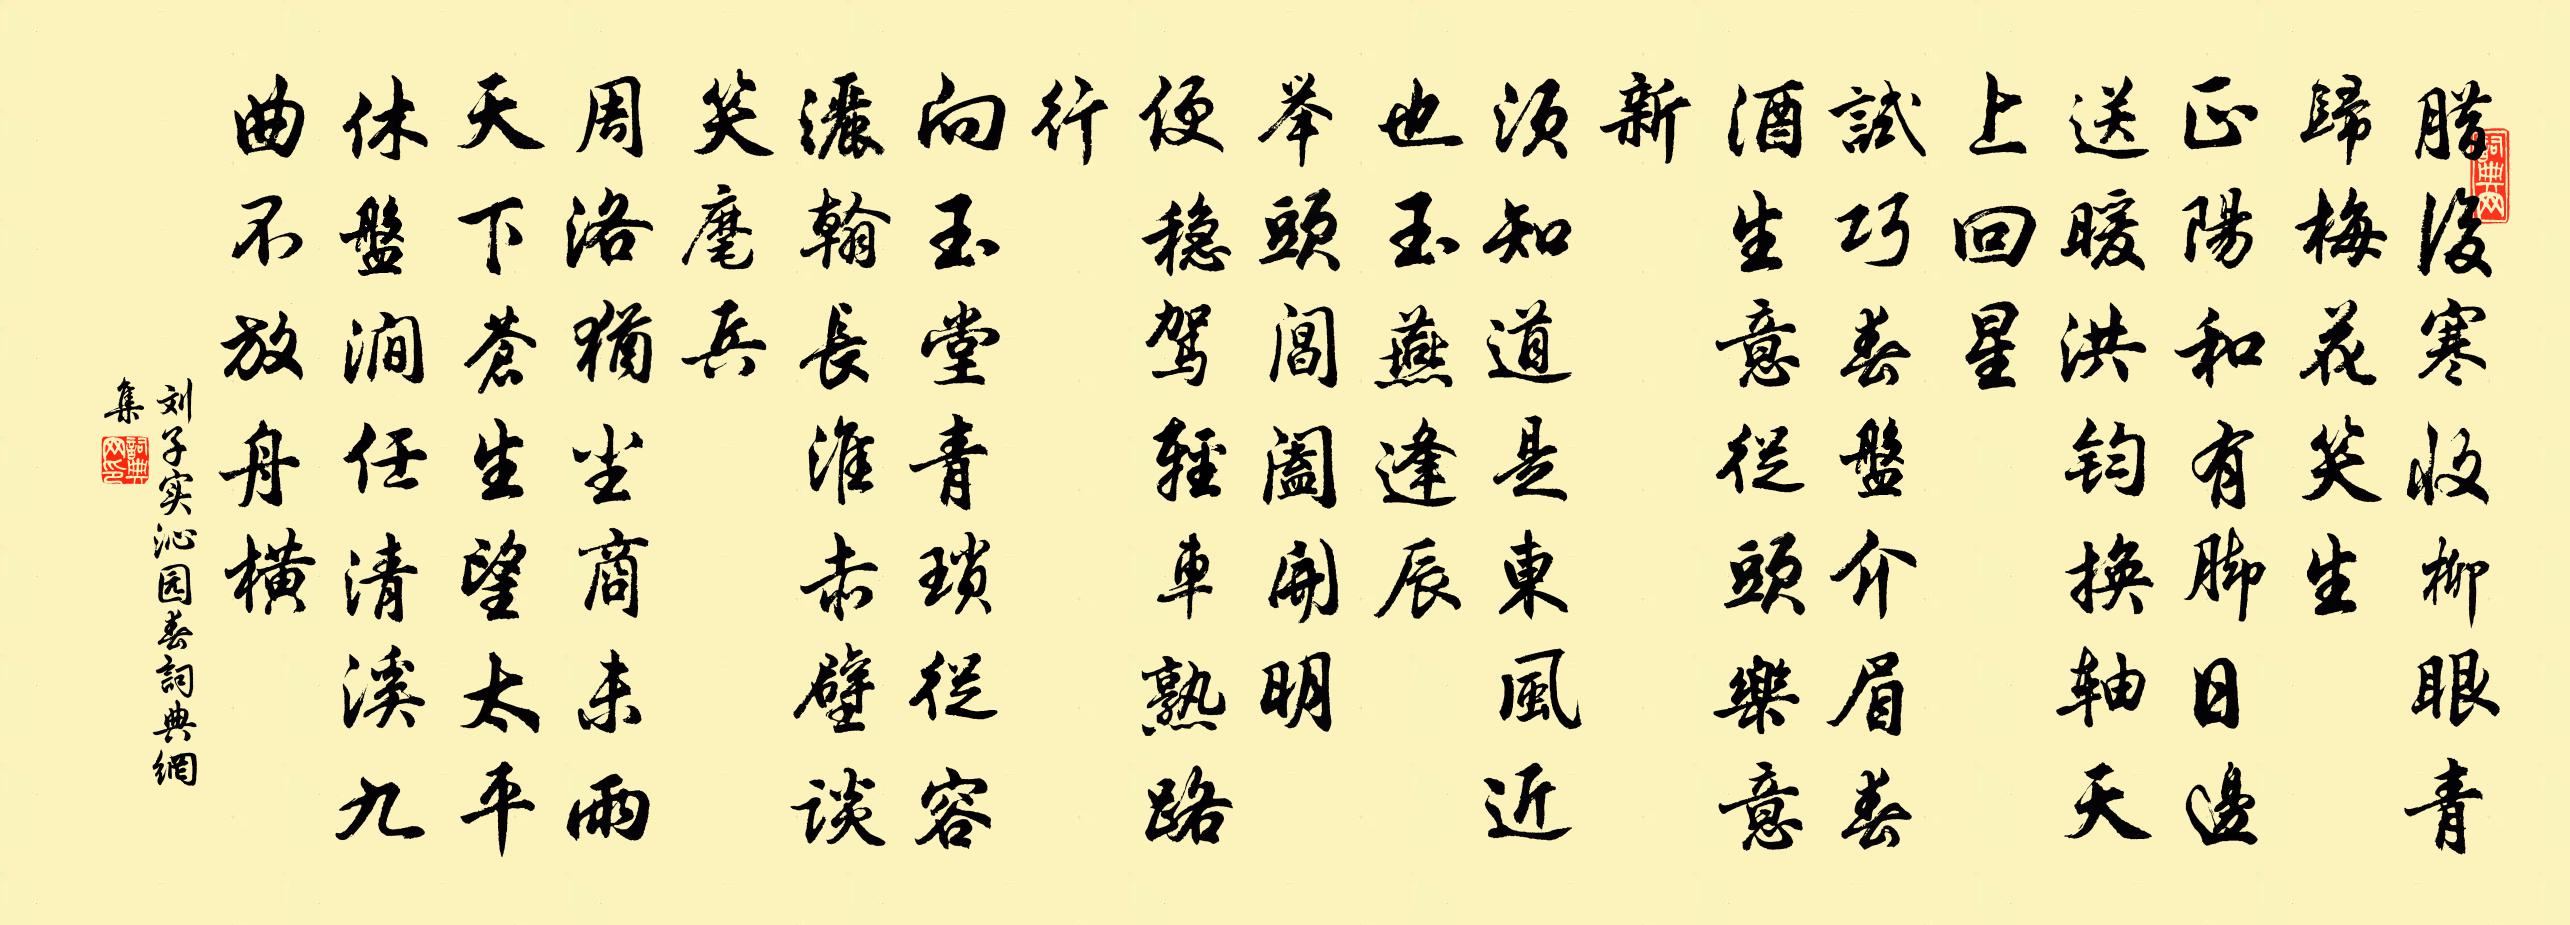 腊後寒收柳眼青
歸梅花笑生
正陽和有脚日邊
送暖洪钧换轴天
上回星
試巧春盤介眉春
酒生意從頭樂意
新
須知道是東風近
也玉燕逢辰
举頭閶阖開明
便稳驾輕車熟路
行
向玉堂青瑣從容
灑翰長淮赤壁談
笑麾兵
周洛猶尘商未雨
天下蒼生望太平
休盤澗任清溪九
曲不放舟横
刘子实沁园春詞典網
集
詞典网
詞典网印